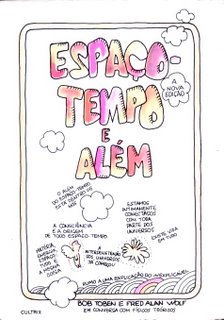 ESPAÇO-
TEMPO
E
ALÉM
A NOVA
EDIÇÃO
O ALÉM
DO ESPAÇO-TEMPO
ESTÁ DENTRO DE
VOCÊ
A CONSCIÊNCIA
É A ORIGEM
DE TODO ESPAÇO-TEMPO
ESTAMOS
INTIMAMENTE
CONECTADOS
COM TODA
PARTE DOS
UNIVERSOS
MATÉRIA,
ENERGIA,
ESPAÇO,
TUDO É
A MESMA
COISA
A
INTERPENETRAÇÃO
DOS UNIVERSOS
JÁ COMEÇOU
EXISTE VIDA
EM TUDO
RUMO A UMA EXPLICAÇÃO DO INEXPLICÁVEL
CULTRIX
BOB TOBEN E FRED ALAN WOLF
EM CONVERSA COM FÍSICOS TEÓRICOS